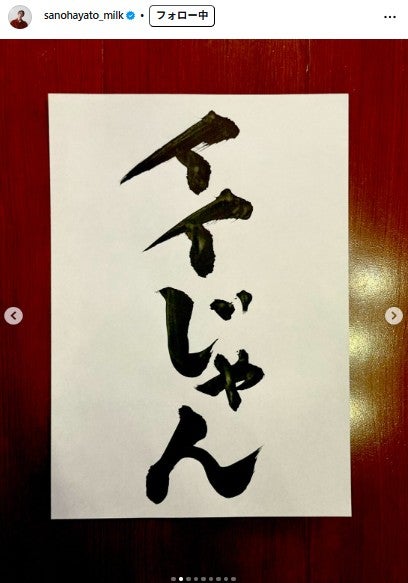 sanohayato_milk • フォロー中
イイじゃん